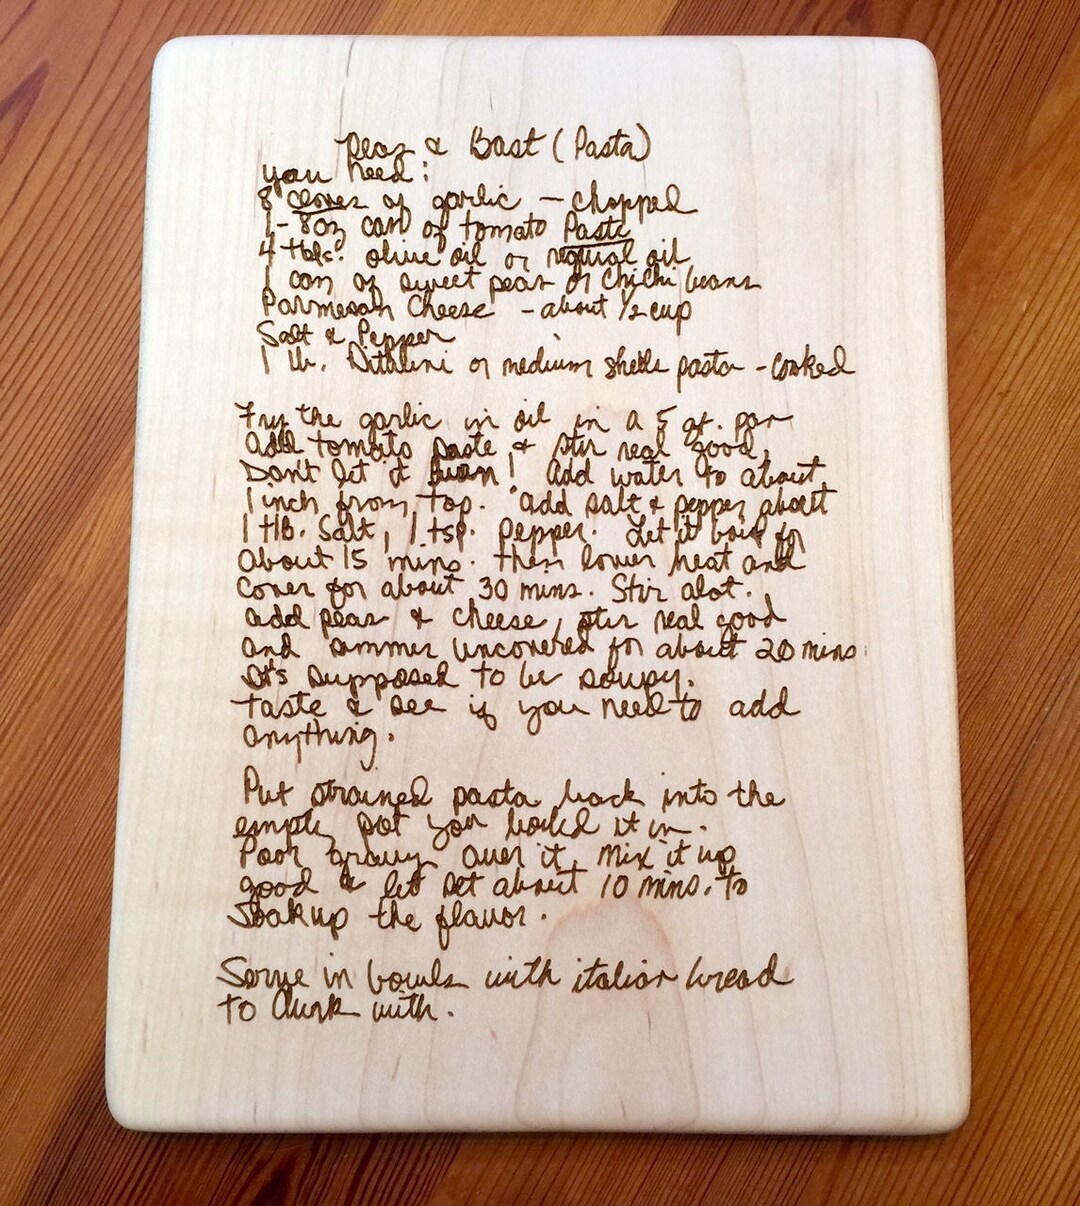 Peas & Bast (Pasta)
you need:
8 cloves of garlic - chopped
1 - 8oz can of tomato Paste
4 tbls. olive oil or regual oil
1 can of sweet peas or chichi beans
Parmesan Cheese - about 1/2 cup
Salt & Pepper
1 lb. Ditalini or medium shells pasta - cooked
Fry the garlic in oil in a 5 qt. pan
add tomato paste & stir real good,
Don't let it burn! add water to about
1 inch from top. add salt & pepper about
1 tlb. Salt, 1 tsp. pepper. Let it boil for
about 15 mins. then lower heat and
cover for about 30 mins. Stir alot.
add peas & cheese, stir real good
and simmer uncovered for about 20 mins.
It's supposed to be soupy.
taste & see if you need to add
anything.
Put strained pasta back into the
empty pot you boiled it in.
Poor gravy over it, mix it up
good & let set about 10 mins. to
soak up the flavor.
Serve in bowls with italian bread
to dunk with.